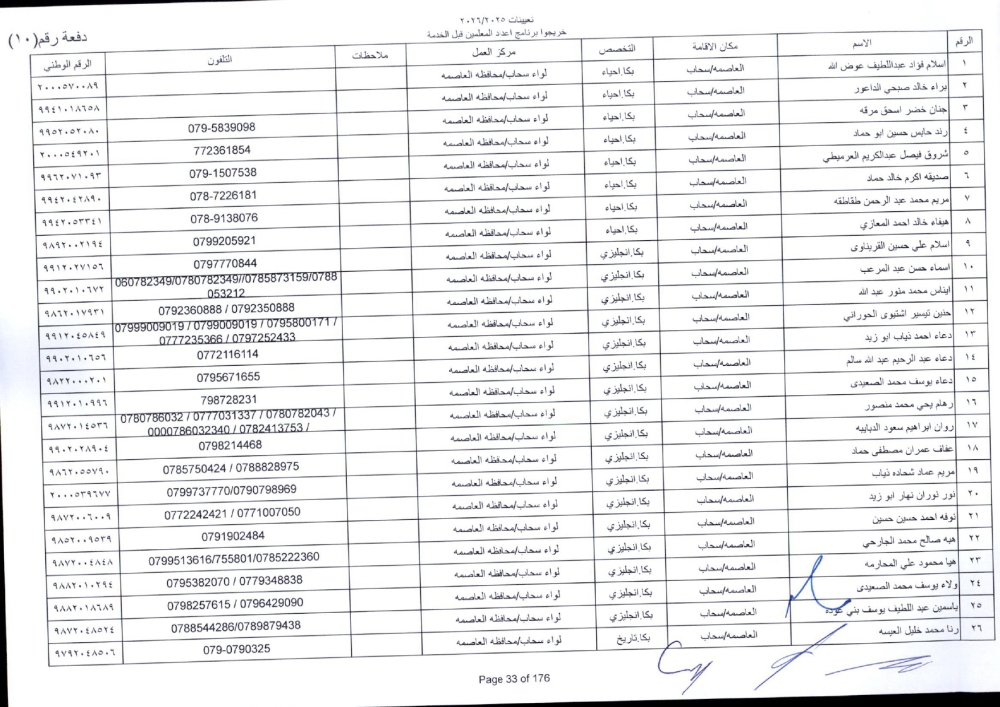 تعيينات ٢٠٢٦/٢٠٢٥
خريجوا برنامج اعدد المعلمين قبل الخدمة
دفعة رقم(١٠)
الرقم الاسم مكان الاقامة التخصص مركز العمل ملاحظات التلفون الرقم الوطني
١ اسلام فؤاد عبداللطيف عوض الله العاصمه/سحاب بكا.احياء لواء سحاب/محافظه العاصمه ٢٠٠٠٥٧٠٠٨٩
٢ براء خالد صبحي الداعور العاصمه/سحاب بكا.احياء لواء سحاب/محافظه العاصمه ٩٩٤١٠١٨٦٥٨
٣ جنان خضر اسحق مرقه العاصمه/سحاب بكا.احياء لواء سحاب/محافظه العاصمه 079-5839098 ٩٩٥٢٠٥٢٠٨٠
٤ رند حابس حسين ابو حماد العاصمه/سحاب بكا.احياء لواء سحاب/محافظه العاصمه 772361854 ٢٠٠٠٥٤٩٢٠١
٥ شروق فيصل عبدالكريم العرميطي العاصمه/سحاب بكا.احياء لواء سحاب/محافظه العاصمه 079-1507538 ٩٩٦٢٠٧١٠٩٣
٦ صديقه اكرم خالد حماد العاصمه/سحاب بكا.احياء لواء سحاب/محافظه العاصمه 078-7226181 ٩٩٤٢٠٤٢٨٩٠
٧ مريم محمد عبد الرحمن طقاطقه العاصمه/سحاب بكا.احياء لواء سحاب/محافظه العاصمه 078-9138076 ٩٩٤٢٠٥٣٣٤١
٨ هيفاء خالد احمد المعازي العاصمه/سحاب بكا.احياء لواء سحاب/محافظه العاصمه 0799205921 ٩٨٩٢٠٠٢١٩٤
٩ اسلام علي حسين القريناوى العاصمه/سحاب بكا.انجليزي لواء سحاب/محافظه العاصمه 0797770844 ٩٩١٢٠٢٧١٥٦
١٠ اسماء حسن عبد المرعب العاصمه/سحاب بكا.انجليزي لواء سحاب/محافظه العاصمه 060782349/0780782349//0785873159/0788053212 ٩٩٠٢٠١٠٦٧٢
١١ ايناس محمد منور عبد الله العاصمه/سحاب بكا.انجليزي لواء سحاب/محافظه العاصمه 0792360888 / 0792350888 ٩٨٦٢٠١٧٩٣١
١٢ حنين تيسير اشتيوى الحوراني العاصمه/سحاب بكا.انجليزي لواء سحاب/محافظه العاصمه 07999009019 / 0799009019 / 0795800171 / 0777235366 / 0797252433 ٩٩١٢٠٤٥٨٤٩
١٣ دعاء احمد ذياب ابو زيد العاصمه/سحاب بكا.انجليزي لواء سحاب/محافظه العاصمه 0772116114 ٩٩٠٢٠١٠٦٥٦
١٤ دعاء عبد الرحيم عبد الله سالم العاصمه/سحاب بكا.انجليزي لواء سحاب/محافظه العاصمه 0795671655 ٩٨٢٢٠٠٠٢٠١
١٥ دعاء يوسف محمد الصعيدى العاصمه/سحاب بكا.انجليزي لواء سحاب/محافظه العاصمه 798728231 ٩٩١٢٠١٠٩٩٦
١٦ رهام يحي محمد منصور العاصمه/سحاب بكا.انجليزي لواء سحاب/محافظه العاصمه 0780786032 / 0777031337 / 0780782043 / 0000786032340 / 0782413753 / ٩٨٧٢٠١٤٥٣٦
١٧ روان ابراهيم سعود الدبايبه العاصمه/سحاب بكا.انجليزي لواء سحاب/محافظه العاصمه 0798214468 ٩٩٠٢٠٢٨٩٠٤
١٨ عفاف عمران مصطفى حماد العاصمه/سحاب بكا.انجليزي لواء سحاب/محافظه العاصمه 0785750424 / 0788828975 ٩٨٦٢٠٥٥٧٩٠
١٩ مريم عماد شحاده ذياب العاصمه/سحاب بكا.انجليزي لواء سحاب/محافظه العاصمه 0799737770/0790798969 ٢٠٠٠٥٣٩٦٧٧
٢٠ نور نوران نهار ابو زيد العاصمه/سحاب بكا.انجليزي لواء سحاب/محافظه العاصمه 0772242421 / 0771007050 ٩٨٧٢٠٠٦٠٠٩
٢١ نوفه احمد حسين حسين العاصمه/سحاب بكا.انجليزي لواء سحاب/محافظه العاصمه 0791902484 ٩٨٥٢٠٠٩٥٣٩
٢٢ هبه صالح محمد الجارحي العاصمه/سحاب بكا.انجليزي لواء سحاب/محافظه العاصمه 0799513616/755801/0785222360 ٩٨٧٢٠٠٤٨٤٨
٢٣ هيا محمود علي المحارمه العاصمه/سحاب بكا.انجليزي لواء سحاب/محافظه العاصمه 0795382070 / 0779348838 ٩٨٨٢٠١٠٢٩٤
٢٤ ولاء يوسف محمد الصعيدى العاصمه/سحاب بكا.انجليزي لواء سحاب/محافظه العاصمه 0798257615 / 0796429090 ٩٨٨٢٠١٨٦٨٩
٢٥ ياسمين عبد اللطيف يوسف بني عوده العاصمه/سحاب بكا.انجليزي لواء سحاب/محافظه العاصمه 0788544286/0789879438 ٩٨٧٢٠٤٨٥٢٤
٢٦ رنا محمد خليل العيسه العاصمه/سحاب بكا.تاريخ لواء سحاب/محافظه العاصمه 079-0790325 ٩٧٩٢٠٤٨٥٠٦
Page 33 of 176